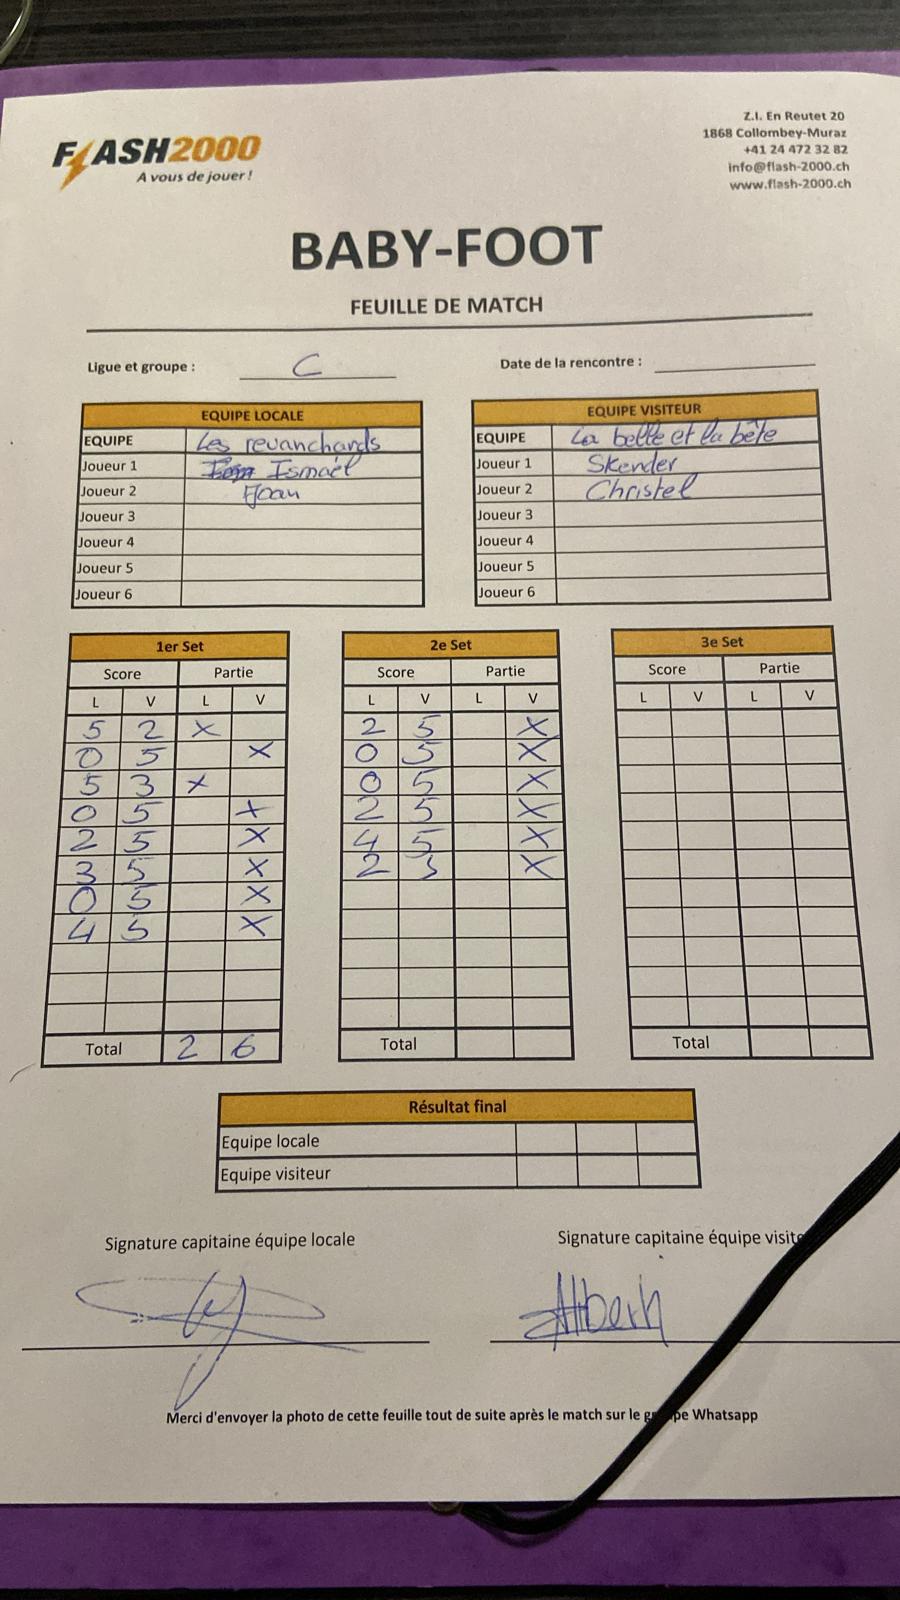 FLASH2000
A vous de jouer !
Z.I. En Reutet 20
1868 Collombey-Muraz
+41 24 472 32 82
info@flash-2000.ch
www.flash-2000.ch
BABY-FOOT
FEUILLE DE MATCH
Ligue et groupe : C
Date de la rencontre :
EQUIPE LOCALE
EQUIPE Les revanchards
Joueur 1 Ismaël
Joueur 2
Joueur 3
Joueur 4
Joueur 5
Joueur 6
EQUIPE VISITEUR
EQUIPE La belle et la bête
Joueur 1 Skender
Joueur 2 Christel
Joueur 3
Joueur 4
Joueur 5
Joueur 6
1er Set
Score Partie
L V L V
5 2 X
0 5 X
5 3 X
0 5 X
2 5 X
3 5 X
0 5 X
4 5 X
Total 2 6
2e Set
Score Partie
L V L V
2 5 X
0 5 X
0 5 X
2 5 X
4 5 X
2 5 X
Total
3e Set
Score Partie
L V L V
Total
Résultat final
Equipe locale
Equipe visiteur
Signature capitaine équipe locale
Signature capitaine équipe visite
Merci d'envoyer la photo de cette feuille tout de suite après le match sur le groupe Whatsapp